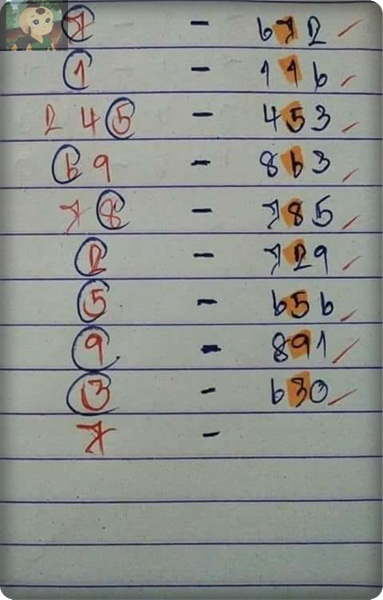 7 - 672
1 - 116
2 4 5 - 453
6 9 - 863
7 8 - 785
2 - 729
5 - 656
9 - 891
3 - 630
7 -